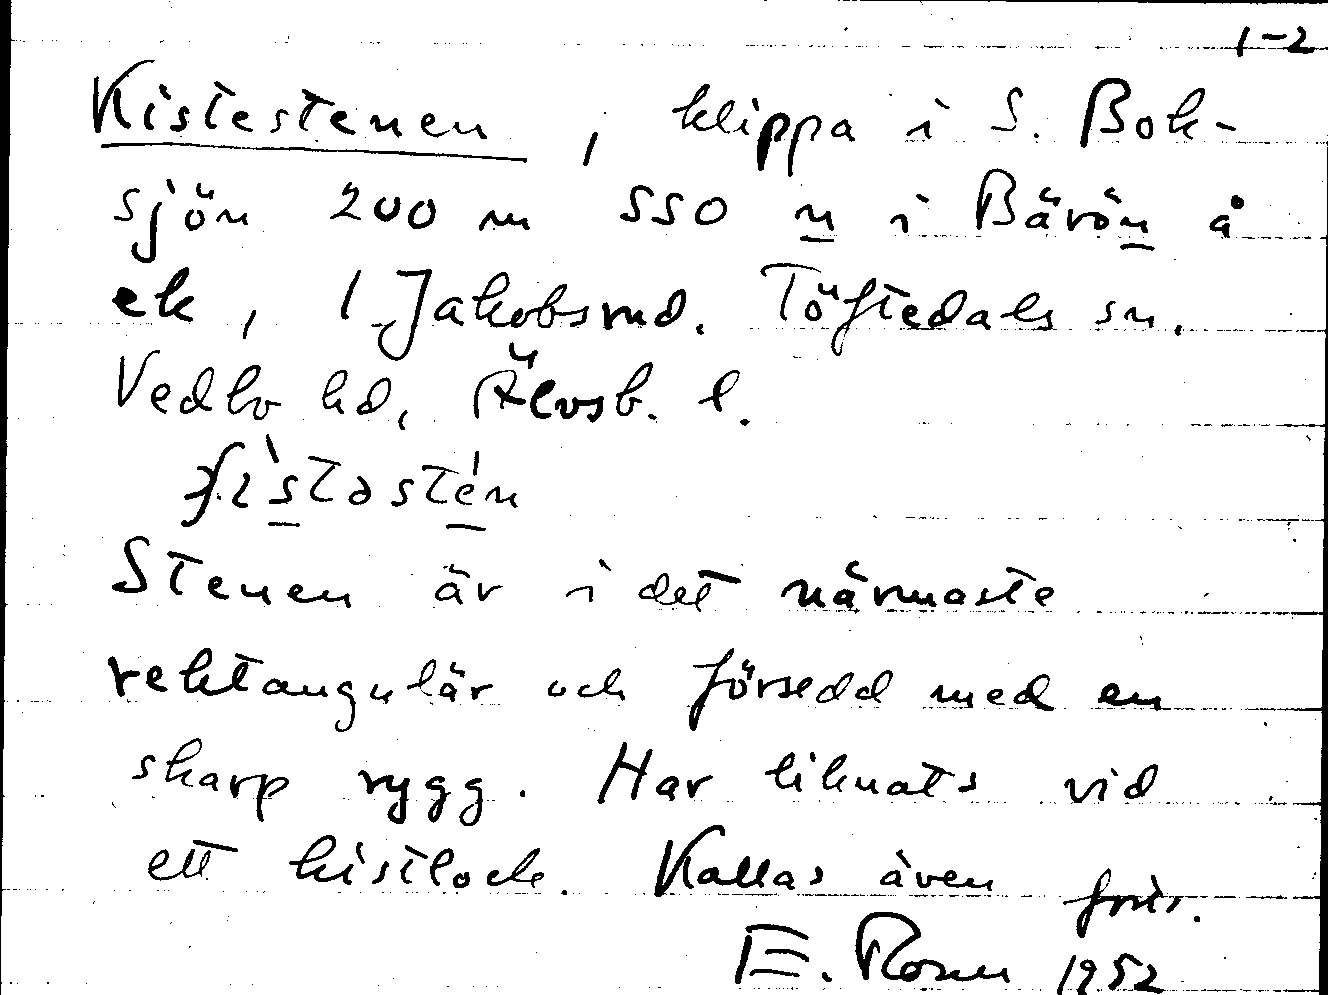 1-2
Kistestenen, klippa i S. Bok-
sjön 200 m SSO n i Bärön å
ek, 1 Jakobsrud. Töftedals sn.
Vedbo hd, Älvsb. l.
Stenen är i det närmaste
rektangulär och försedd med en
skarp rygg. Har liknats vid
ett kistlock. Kallas även
E. Rosen 1952